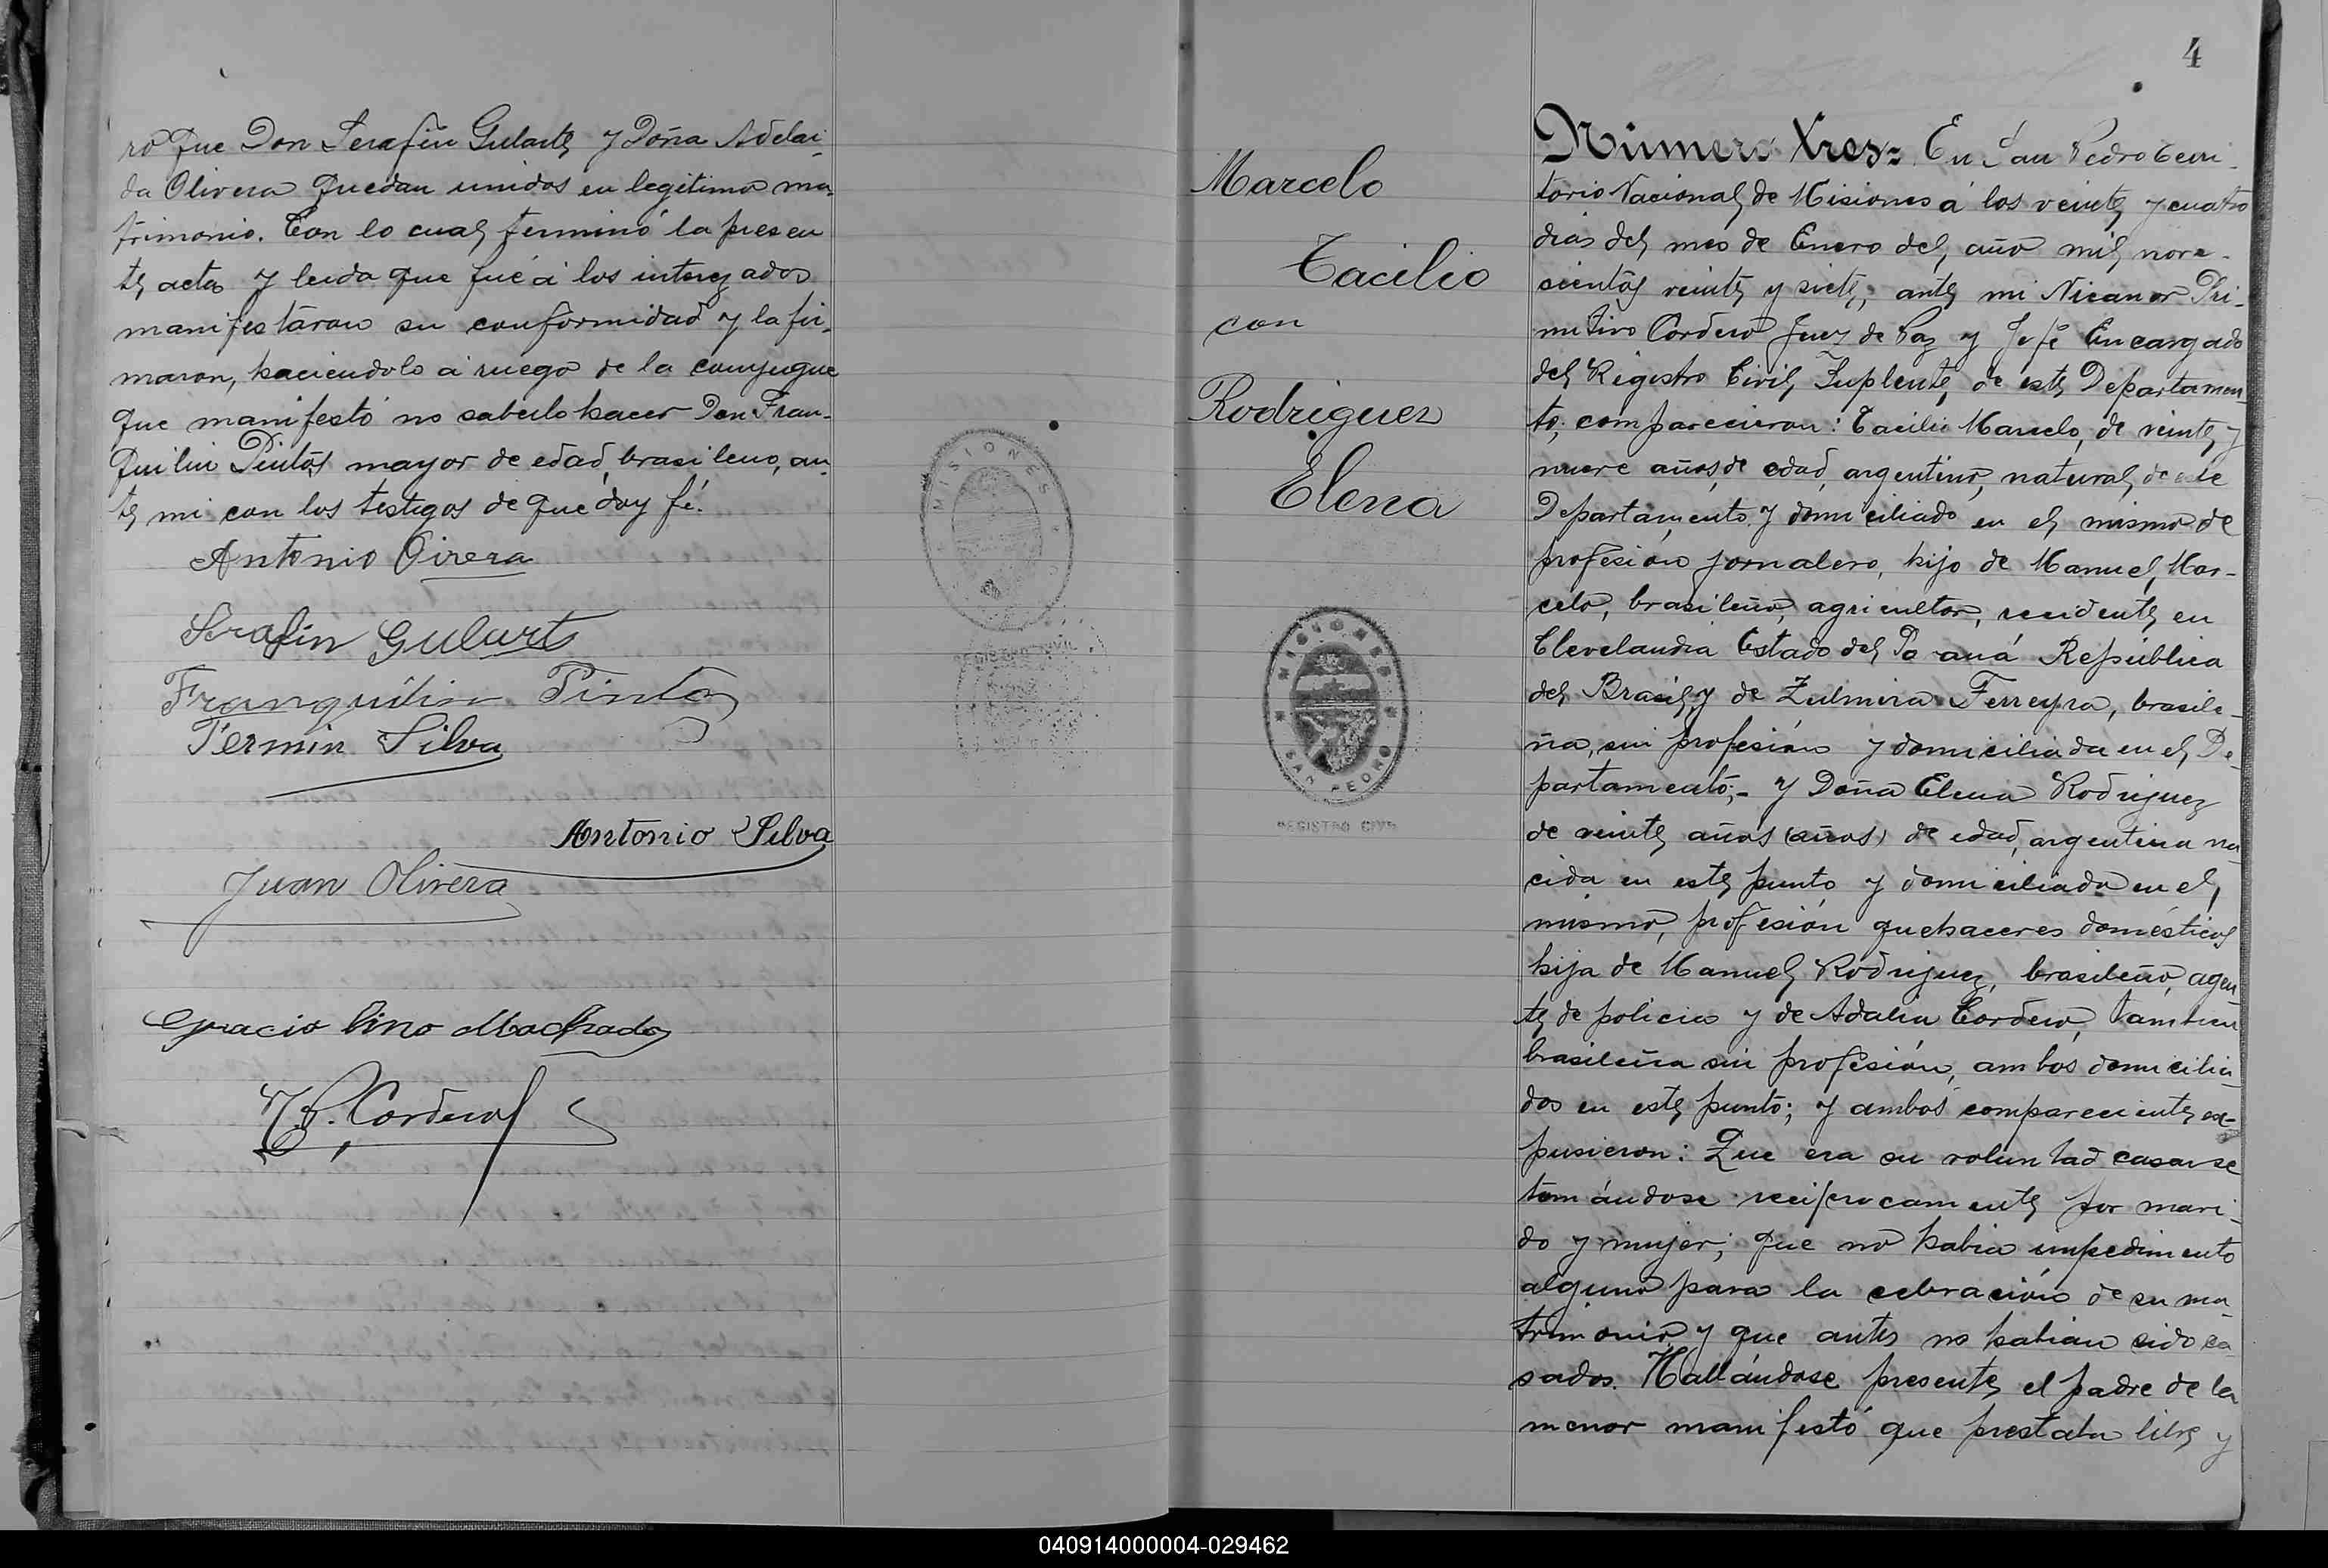 ro que Don Serafin Gularte y Doña Adelai-
da Olivera quedan unidos en legitimo ma-
trimonio. Con lo cual terminó la presen
te acta y leida que fué á los interezados
manifestaron su conformidad y la fir-
maron, haciendolo á ruego de la conyugue
que manifestó no saberlo hacer Don Fran-
quilin Pintos mayor de edad, brasileno, an-
te mi con los testigos de que doy fé.
Antonio Oirera
Serafin Gularte
Franquilin Pintos
Fermin Silva
Antonio Silva
Juan Olivera
Gracio Lino Machado
N. P. Cordero
MISIONES
REGISTRO CIVIL
4
Marcelo
Tacilio
con
Rodriguez
Elena
MISIONES
SAN PEDRO
REGISTRO CIVIL
Número Tres= En San Pedro terri-
torio Nacional de Misiones á los veinte y cuatro
dias del mes de Enero del año mil nove-
scientos veinte y siete; ante mi Nicanor Pri-
mitivo Cordero Juez de Paz y Jefe Encargado
del Registro Civil Suplente, de este Departamen-
to, comparecieron: Tacilio Marcelo, de veinte y
nueve años de edad, argentino, natural de este
Departamento y domiciliado en el mismo de
profesion jornalero, hijo de Manuel Mar-
celo, brasileño, agricultor, recidente en
Clevelandia Estado del Pa aná República
del Brasil y de Zulmira Ferreyra, brasile-
ña, sin profesión y domiciliada en el De-
partamento;- y Doña Elena Rodriguez
de veinte años (años) de edad, argentina na-
cida en este punto y domiciliada en el
mismo, profesión quehaceres domésticos
hija de Manuel Rodriguez, brasileño, agen-
te de policia y de Adalia Cordero, tambien
brasileña sin profesión, ambos domicilia-
dos en este punto; y ambos compareciente ex-
pusieron: Que era su voluntad casarse
tomándose reciprocamente por mari-
do y mujer; que no habia impedimento
alguno para la cebración de su ma-
trimonio y que antes no habian sido ca-
sados. Hallándose presente el padre de la
menor manifestó que prestaba libre y
040914000004-029462